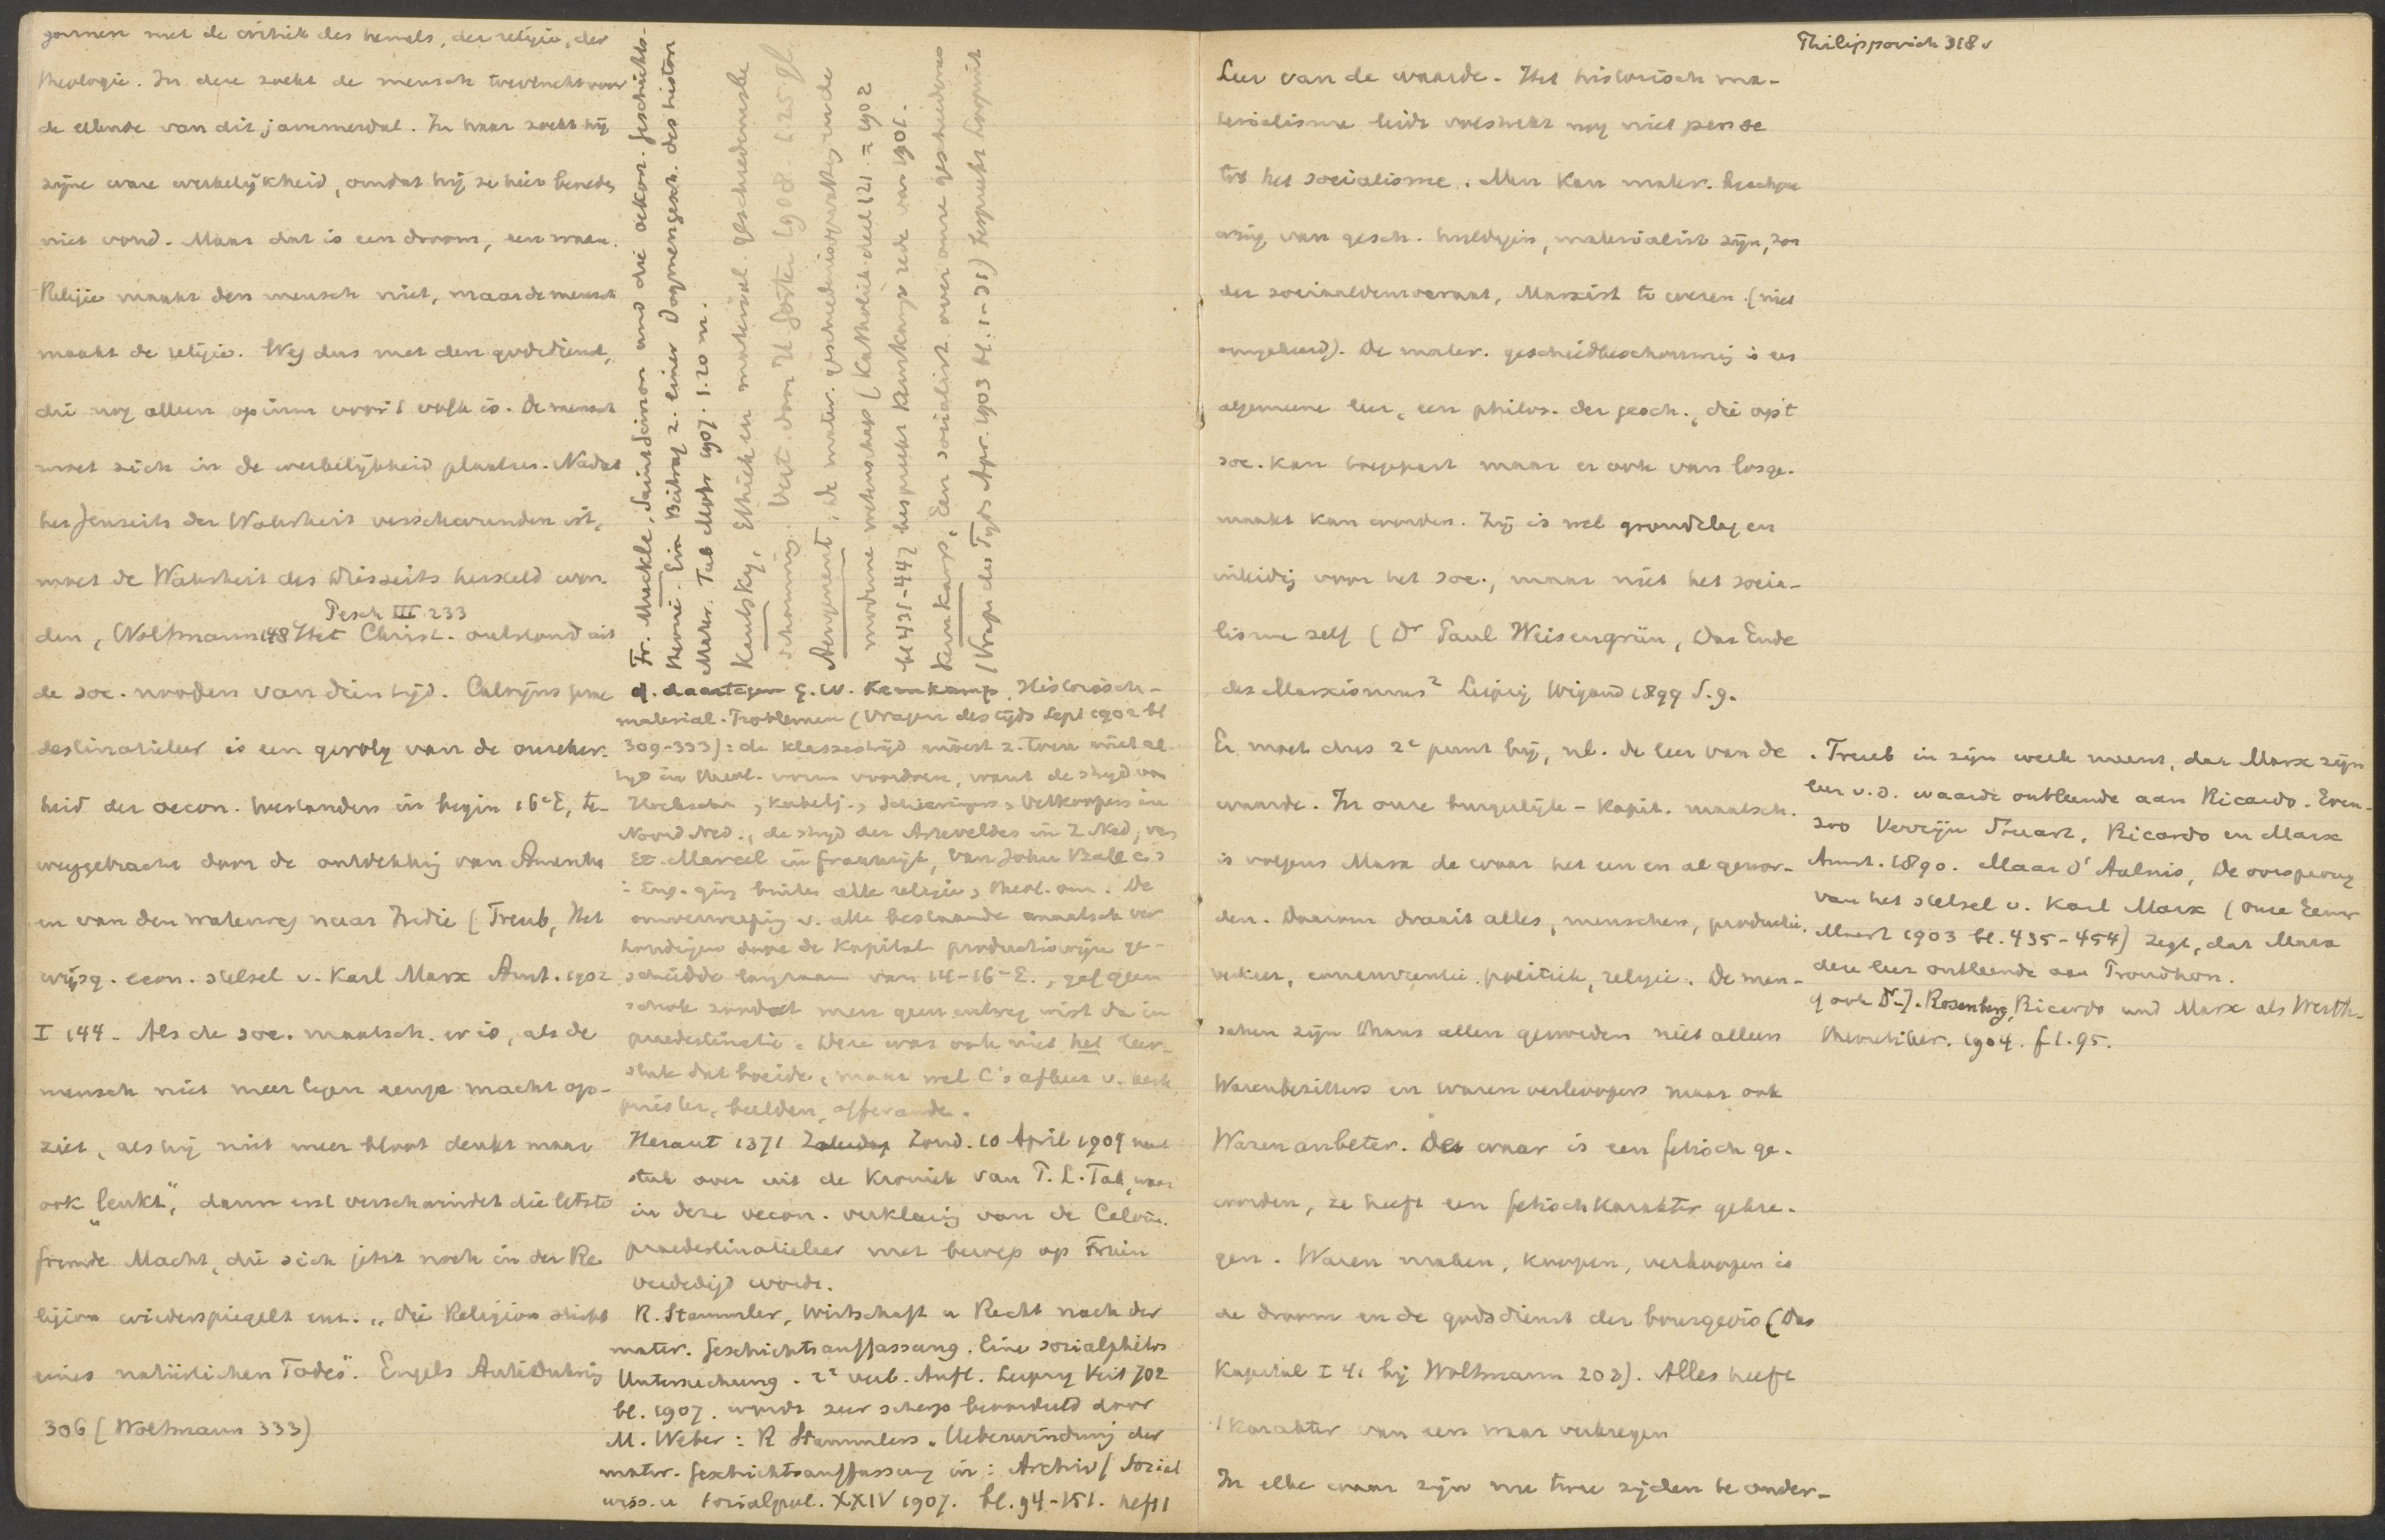 gonnen met de critiek des hemels, der religie, der
theologie. In deze zoekt de mensch toevlucht voor
de ellende van dit jammerdal. In haar zoekt hij
zijne ware werkelijkheid, omdat hij ze hier beneden
niet vond. Maar dat is een droom, een waan.
Religie maakt den mensch niet, maar de mensch
maakt de religie. Weg dus met den godsdienst,
die nog alleen opium voor 't volk is. De mensch
moet zich in de werkelijkheid plaatsen. Nadat
het Jenseits der Wahrheit verschwunden ist,
moet de Wahrheit des Diesseits hersteld wor-
Pesch III 233
den, Woltmann 148 Het Christ. ontstond uit
de soc. nooden van dien tijd. Calvijns prae
destinatieleer is een gevolg van de onzeker-
heid der oecon. toestanden in begin 16e E, te-
weeggebracht door de ontdekking van Amerika
en van den waterweg naar Indie (Treub, Het
wijsg. econ. stelsel v. Karl Marx Amst. 1902
I 144. Als de soc. maatsch. er is, als de
mensch niet meer tegen eenige macht op-
ziet, als hij niet meer bloot denkt maar
ook „lenkt", dann erst verschwindet die letzte
fremde Macht, die sich jetzt noch in der Re
ligion wiederspiegelt enz. „Die Religion stirbt
eines natürlichen Todes". Engels Antidühring
306 (Woltmann 333)
Fr. Muckle, Saint Simon und die oekon. Geschichts-
theorie. Ein Beitrag z. einer Dogmengesch. des histor
Mater. Jena 1907. 1.20 m.
Kautsky, Ethiek en materieel. geschiedenisbe
schouwing. Vert. door H Gorter 1908. 1.25 gl.
Aengenent, De mater. geschiedenisopvatting en de
moderne wetenschap (Katholiek deel 121 = 1902
bl 431-447 bespreekt Kernkamps rede van 1901.
Kernkamp, Een socialist over onze geschiedenis
(Vragen des Tijds Apr. 1903 bl. 1-31) bespreekt
cf. daartegen G. W. Kernkamp, Historisch-
material. Problemen (Vragen des tijds Sept 1902 bl
309-333): de klassestrijd moest z. toen niet al-
tijd in theol. vorm voordoen, want de strijd van
Hoekschen, Kabelj., Schieringers, Vetkoopers in
Noord Ned., de strijd der Arteveldes in Z Ned, van
Et. Marcel in Frankrijk, van John Ball c.s
in Eng. ging buiten alle religie, theol. om. De
omverwerping v. alle bestaande maatsch ver
houdingen door de kapital. productiewijze ge-
schiedde langzaam van 14-16e E., gaf geen
schok zoodat men geen uitweg wist dan in
praedestinatie. Deze was ook niet het leer-
stuk dat boeide, maar wel C's afkeer v. kerk
priester, beelden, offerande.
Heraut 1371 Zond. 10 April 1904 neemt
stuk over uit de Kroniek van P. L. Tak, waar
in deze oecon. verklaring van de Calvin.
praedestinatieleer met beroep op Fruin
verdedigd wordt.
R. Stammler, Wirtschaft u Recht nach der
mater. Geschichtsauffassung. Eine sozialphilos
Untersuchung. 2e verb. Aufl. Leipzig Veit 702
bl. 1907. wordt zeer scherp beoordeeld door
M. Weber: R Stammlers „Ueberwindung der
mater. Geschichtsauffassung in: Archiv f Sozial
wiss. u Sozialpol. XXIV 1907. bl. 94-151. Heft 1
Philippovich 318 v
Leer van de waarde. Het historisch ma-
terialisme leidt volstrekt nog niet per se
tot het socialisme. Men kan mater. beschou
wing van gesch. huldigen, materialist zijn, zon
der sociaaldemocraat, Marxist te wezen. (niet
omgekeerd). De mater. geschiedbeschouwing is een
algemeene leer, een philos. der gesch., die op 't
soc. kan toegepast maar er ook van losge-
maakt kan worden. Zij is wel grondslag en
inleiding voor het soc., maar niet het socia-
lisme zelf (Dr Paul Weisengrün, Das Ende
des Marxismus2 Leipzig Wigand 1899 S. 9.
Er moet dus 2e punt bij, nl. de leer van de
waarde. In onze burgerlijk-kapit. maatsch.
is volgens Marx de waar het een en al gewor-
den. Daarom draait alles, menschen, productie,
verkeer, politiek, religie. De men-
schen zijn thans allen geworden niet alleen
Warenbesitzers en waren verkoopers maar ook
Warenanbeter. De waar is een fetisch ge-
worden, ze heeft een fetischkarakter gekre-
gen. Waren maken, koopen, verkoopen is
de droom en de godsdienst der bourgeois (Das
Kapital I 41 bij Woltmann 203). Alles heeft
't karakter van een waar verkregen
In elke waar zijn nu twee zijden te onder-
. Treub in zijn werk meent, dat Marx zijn
leer v. d. waarde ontleende aan Ricardo. Even-
zoo Verrijn Stuart, Ricardo en Marx
Amst. 1890. Maar d'Aulnis, De oorsprong
van het stelsel v. Karl Marx (Onze Eeuw
Maart 1903 bl. 435-454) zegt, dat Marx
deze leer ontleende aan Proudhon.
cf ook Dr J. Rosenberg, Ricardo und Marx als Werth-
theoretiker. 1904. f 1.95.